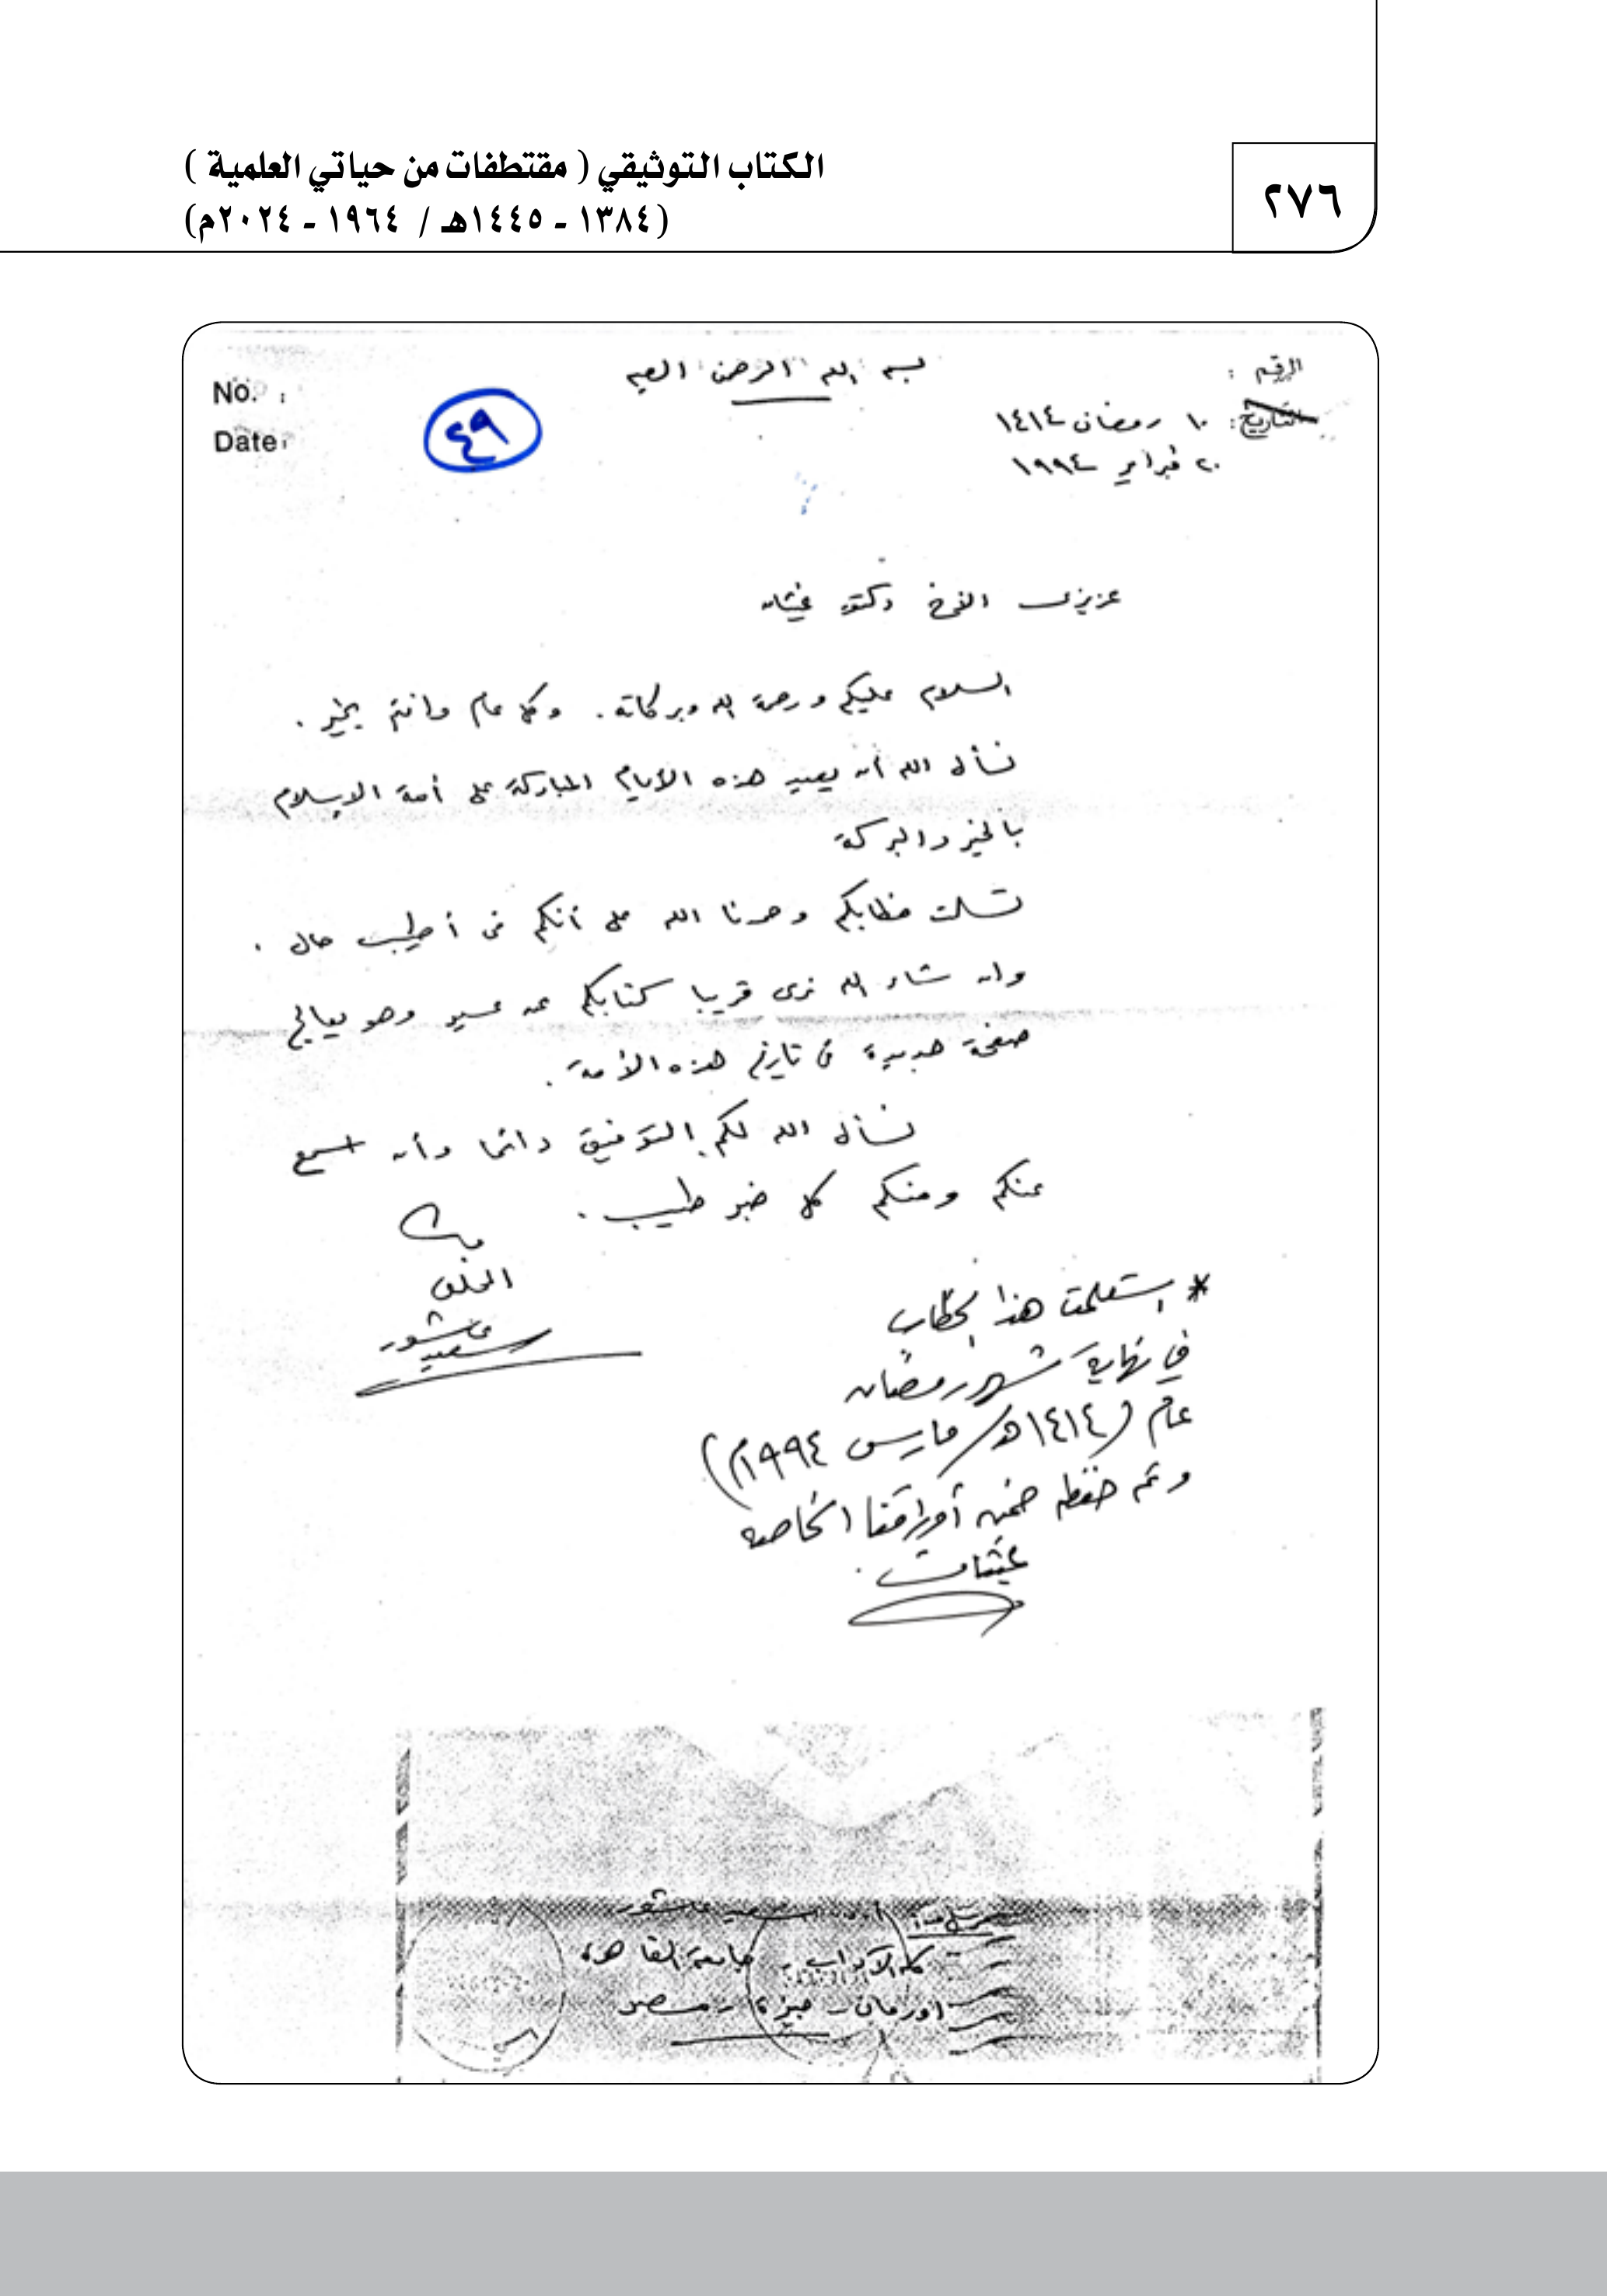 الكتاب التوثيقي ( مقتطفات من حياتي العلمية )
(١٣٨٤ - ١٤٤٥هـ / ١٩٦٤ - ٢٠٢٤م)
٢٧٦
بسم الله الرحمن الرحيم
الرقم :
No. :
التاريخ : ١٠ رمضان ١٤١٤
Date :
٤٩
٢٠ فبراير ١٩٩٤
عزيزى الأخ دكتور غيثان
السلام عليكم ورحمة الله وبركاته . وكل عام وانتم بخير .
نسأل الله أن يعيد هذه الأيام المباركة على أمة الاسلام
بالخير والبركة
تسلمت خطابكم وحمدنا الله على أنكم فى أطيب حال .
وان شاء الله نرى قريبا كتابكم عن عسير وهو يعالج
صفحة جديدة فى تاريخ هذه الأمة .
نسأل الله لكم التوفيق دائما وأن نسمع
عنكم ومنكم كل خبر طيب .
المخلص
سعيد عاشور
* استلمت هذا الخطاب
في نهاية شهر رمضان
عام (١٤١٤هـ/ مارس ١٩٩٤م)
وتم حفظه ضمن أوراقنا الخاصة
غيثان .
سعيد عاشور
كلية الآداب - جامعة القاهرة
اورمان - جيزة - مصر